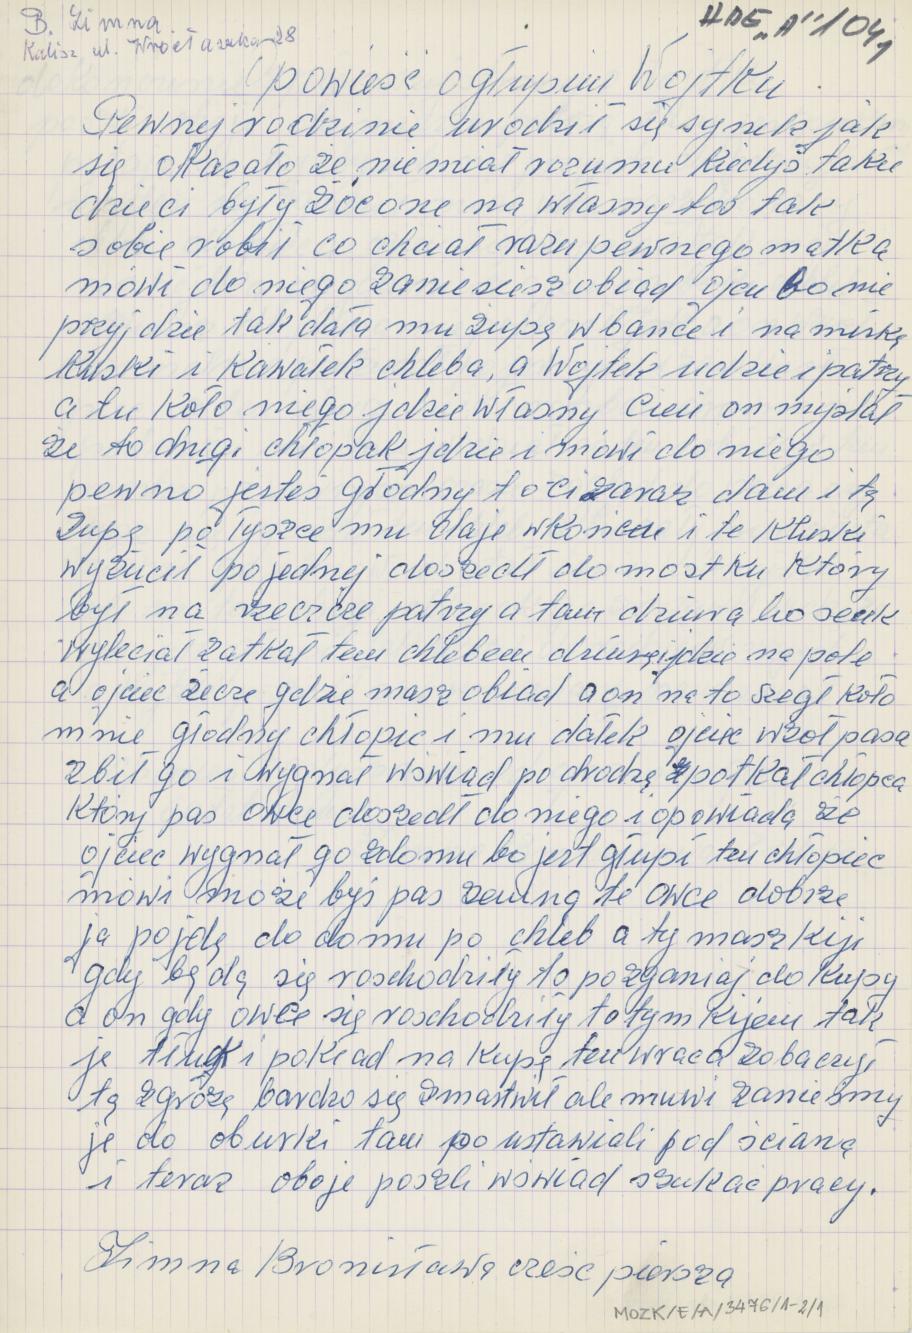 B. Zimna
Kalisz ul. Wrocławska 28
HDE „A"/1041
powieść o głupim Wojtku.
Pewnej rodzinie urodził się synek jak
się okazało że niemiał rozumu kiedyś takie
dzieci były żócone na własny los tak
sobie robił co chciał razu pewnego matka
mówi do niego zaniesiesz obiad ojcu bo nie
przyjdzie tak dała mu zupę w bańce i na miskę
kluski i kawałek chleba, a Wojtek udzie i patrzy
a tu koło niego jdzie własny cień on myślał
że to drugi chłopak jdzie i mówi do niego
pewno jesteś głodny to ci zaraz dam i tą
zupę po łyszce mu daje wkońcu i te kluski
wyżucił pojednej doszedł do mostku który
był na rzeczce patrzy a tam dziura bo sęk
wyleciał zatkał tem chlebem dziurę i jdzie na pole
a ojciec żecze gdzie masz obiad a on na to szegł koło
mnie głodny chłopic i mu dałek ojciec wzoł pasa
zbił go i wygnał wświad po drodzę spotkał chłopca
który pas owce doszedł do niego i opowiada że
ojciec wygnał go zdomu bo jest głupi ten chłopiec
mówi może byś pas zemną te owce dobrze
ja pojdę do domu po chleb a ty masz kiji
gdy będą się roschodziły to pozganiaj do kupy
a on gdy owce się roschodziły to tym kijem tak
je tłuk i pokład na kupę ten wraca zobaczył
tą zgrozę bardzo się zmartwił ale muwi zaniesmy
je do oburki tam po ustawiali pod ścianą
i teraz oboje poszli wświad szukać pracy.
Zimna Bronisława cześć piersza
MOZK/E/A/3476/1-2/1